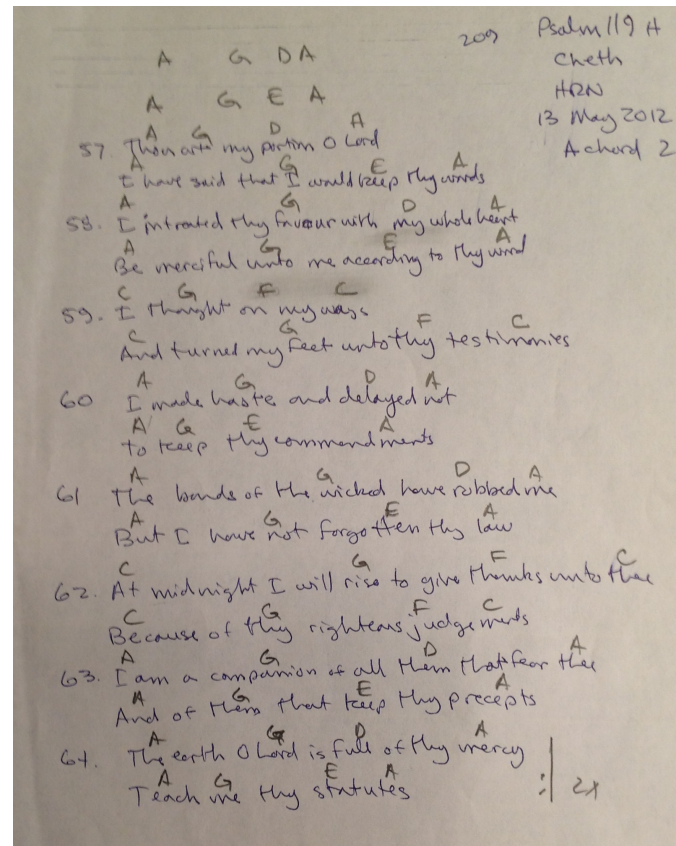 209 Psalm 119 H
Cheth
HRN
13 May 2012
A chord 2
A G D A
A G E A
A G D A
57. Thou art my portion O Lord
A G E A
I have said that I would keep thy words
A G D A
58. I intreated thy favour with my whole heart
A G E A
Be merciful unto me according to thy word
C G F C
59. I thought on my ways
C G F C
And turned my feet unto thy testimonies
A G D A
60 I made haste and delayed not
A G E A
to keep thy commandments
A G D A
61 The bands of the wicked have robbed me
A G E A
But I have not forgotten thy law
C G F C
62. At midnight I will rise to give thanks unto thee
C G F C
Because of thy righteous judgements
A G D A
63. I am a companion of all them that fear thee
A G E A
And of them that keep thy precepts
A G D A
64. The earth O Lord is full of thy mercy
A G E A
Teach me thy statutes :| 2x